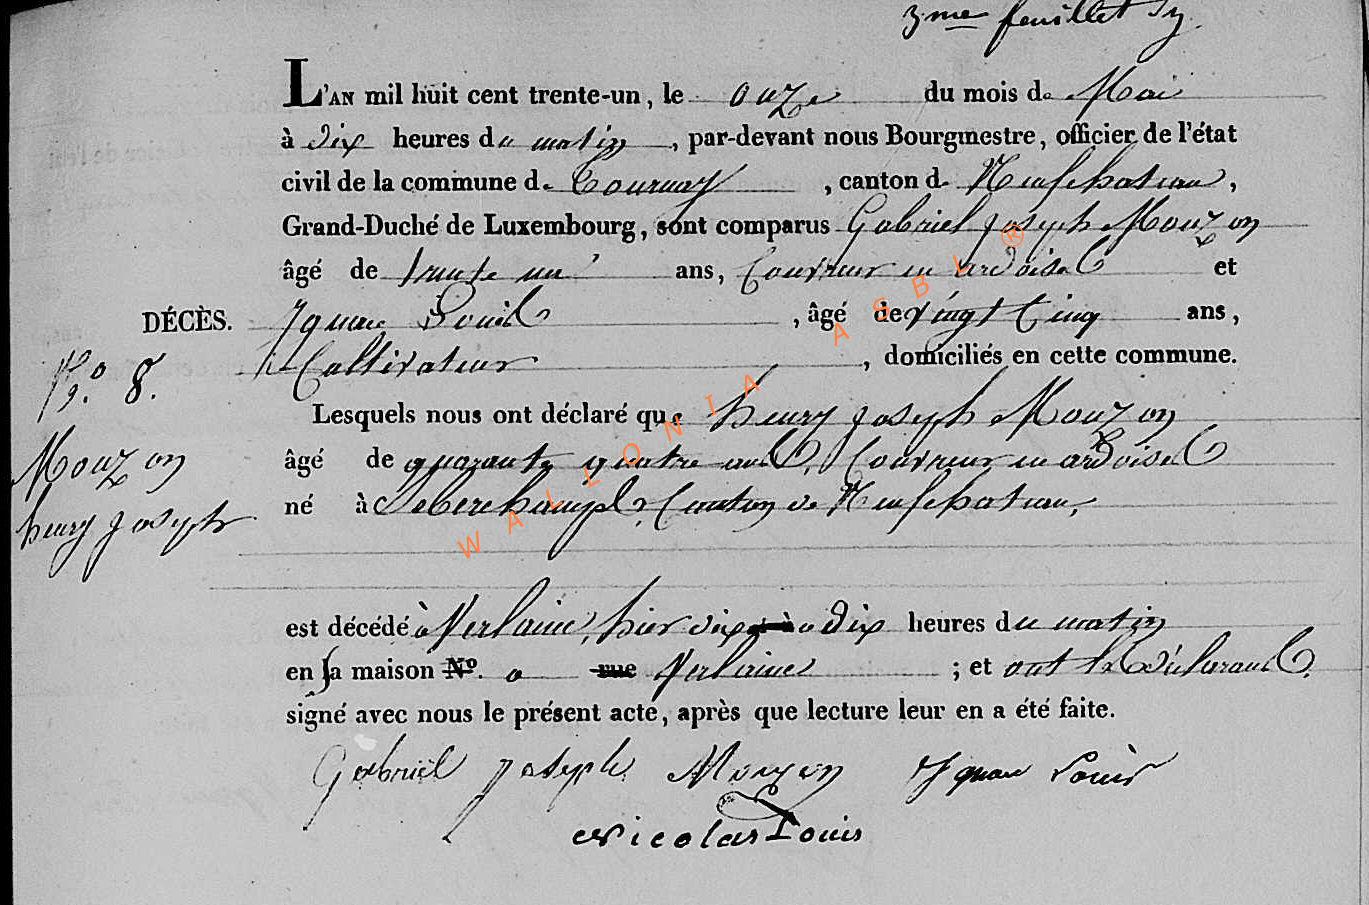 3me feuillet
L'AN mil huit cent trente-un, le onze du mois de Mai
à dix heures du matin, par-devant nous Bourgmestre, officier de l'état
civil de la commune de Tournay, canton de Neufchateau,
Grand-Duché de Luxembourg, sont comparus Gabriel Joseph Mouzon
âgé de trente un ans, Couvreur en ardoises et
DÉCÈS. Ignace Louis, âgé de vingt Cinq ans,
N.o 8. Cultivateur, domiciliés en cette commune.
Lesquels nous ont déclaré que henry joseph Mouzon
Mouzon âgé de quarante quatre ans, Couvreur en ardoises
henry joseph né à Seberchamps, Canton de Neufchateau,
est décédé à Verlaine, hier dix à dix heures du matin
en sa maison No. a rue Verlaine ; et ont les déclarans
signé avec nous le présent acte, après que lecture leur en a été faite.
Gabriel joseph Mouzon Ignace Louis
Nicolas Louis
WALLONIA ASBL ®